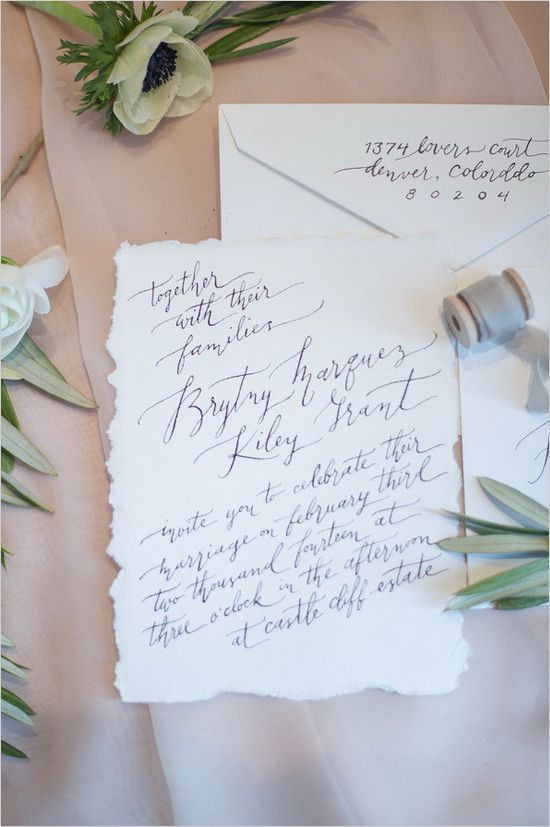 1374 lovers court
denver, colorddo
80204
together
with their
families
Brytny Marquez
Kiley Grant
invite you to celebrate their
marriage on february third
two thousand fourteen at
three o'clock in the afternoon
at castle cliff estate